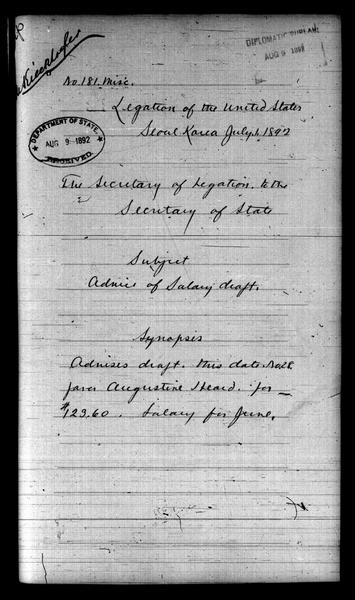 DIPLOMATIC BUREAU
AUG 9 1892
No. 181. Misc.
Legation of the United States
Seoul Korea July 1. 1892
DEPARTMENT OF STATE
AUG 9 1892
RECEIVED
The Secretary of Legation to the
Secretary of State
Subject
Advice of Salary draft.
Synopsis
Advises draft. this date.
favor Augustine Heard. for
$123.60. Salary for June.